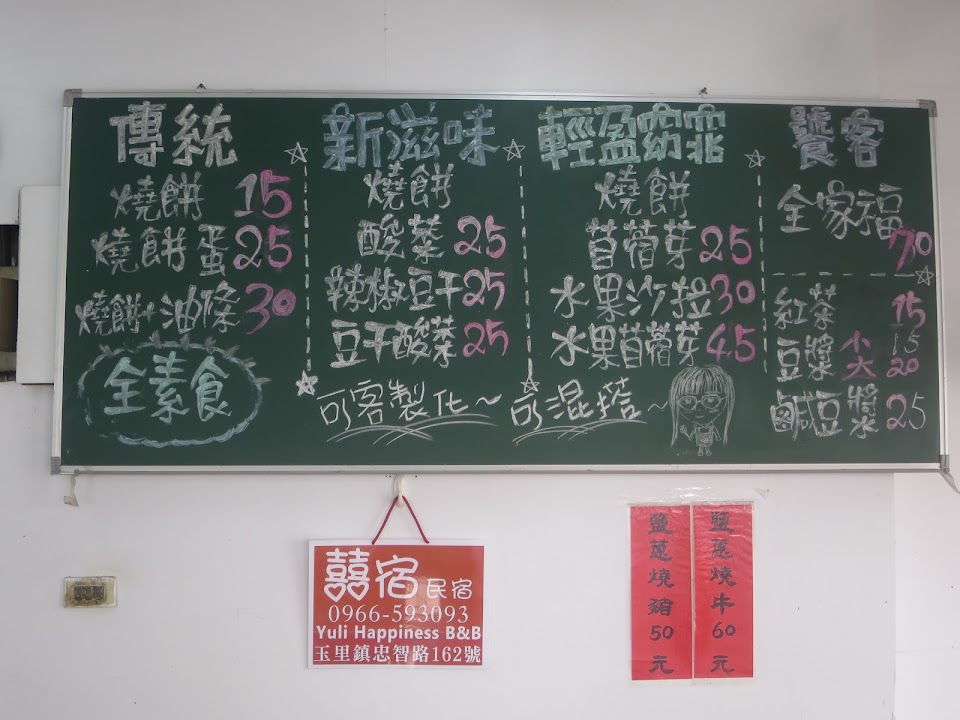 傳統
燒餅 15
燒餅蛋 25
燒餅+油條 30
全素食
新滋味
燒餅
酸菜 25
辣椒豆干 25
豆干酸菜 25
可客製化~
輕盈窈窕
燒餅
苜蓿芽 25
水果沙拉 30
水果苜蓿芽 45
可混搭~
饕客
全家福
70
紅茶 15
豆漿 小 15
大 20
鹹豆漿 25
囍宿 民宿
0966-593093
Yuli Happiness B&B
玉里鎮忠智路162號
鹽蔥燒豬50元
鹽蔥燒牛60元